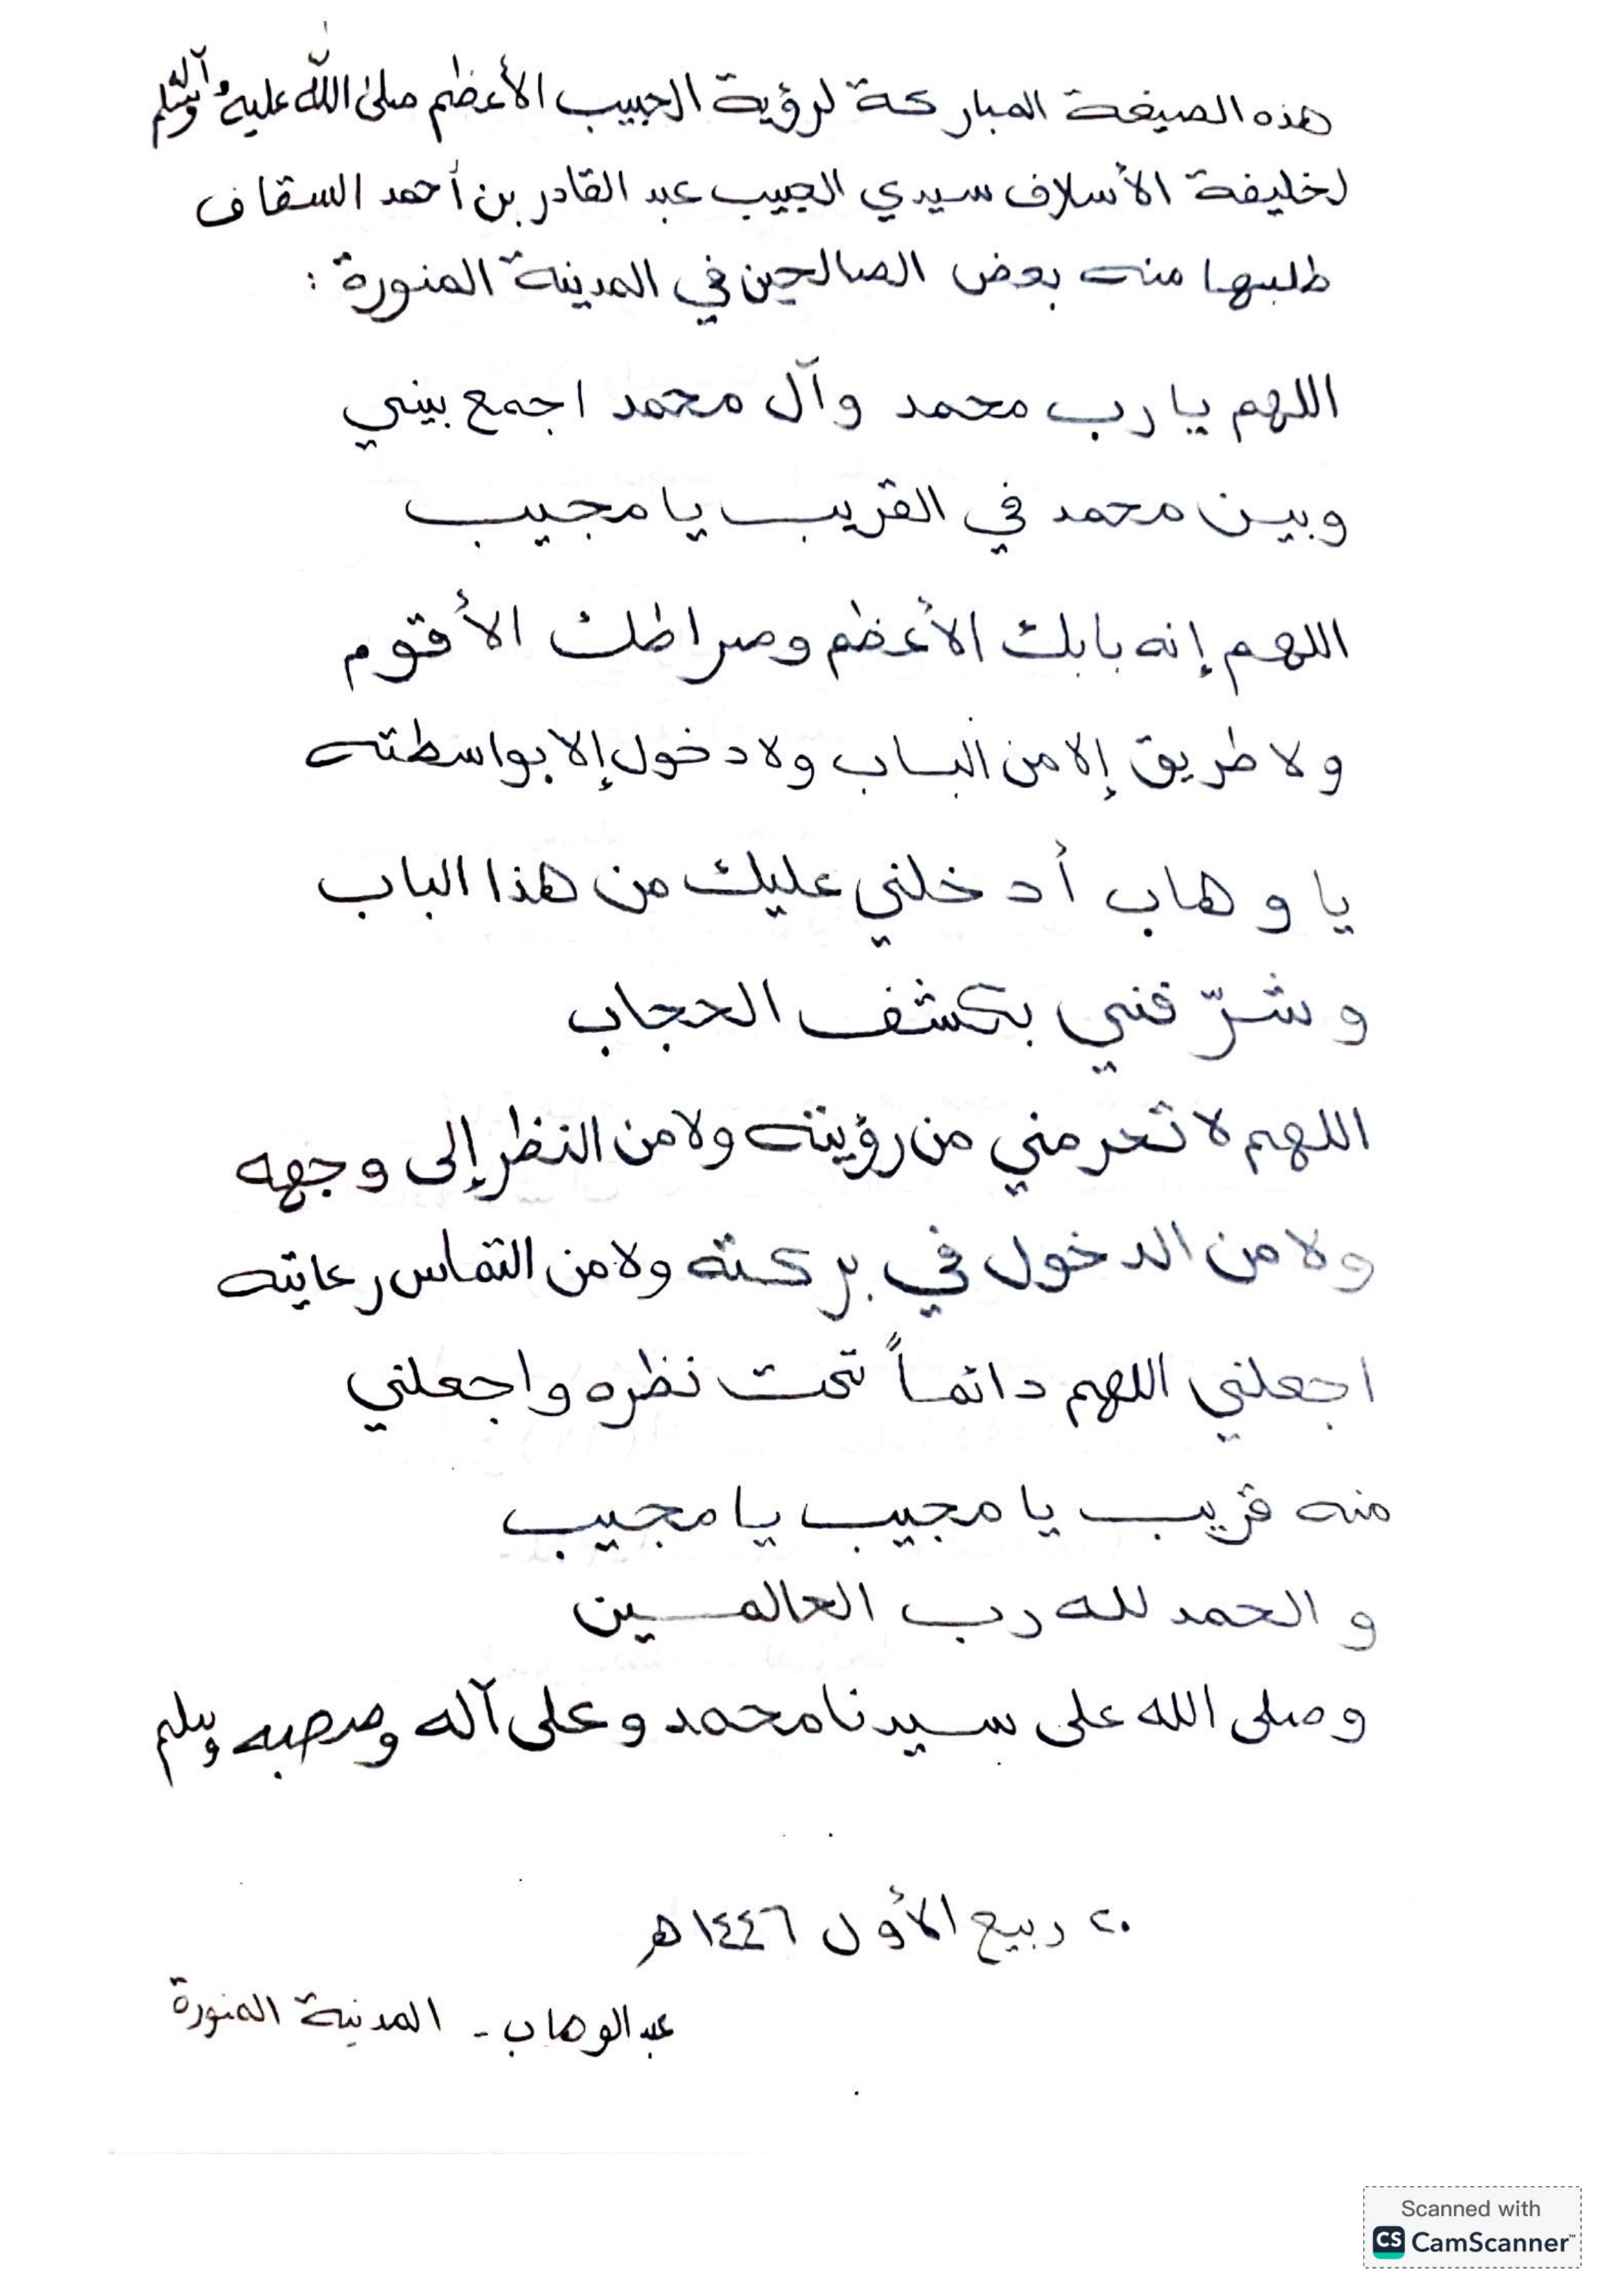 هذه الصيغة المباركة لرؤية الحبيب الأعظم صلى الله عليه وآله وسلم
لخليفة الأسلاف سيدي الحبيب عبد القادر بن أحمد السقاف
طلبها منه بعض الصالحين في المدينة المنورة :
اللهم يا رب محمد وآل محمد اجمع بيني
وبين محمد في القريب يا مجيب
اللهم إنه بابك الأعظم وصراطك الأقوم
ولا طريق إلا من الباب ولا دخول إلا بواسطته
يا وهاب أدخلني عليك من هذا الباب
وشرّفني بكشف الحجاب
اللهم لا تحرمني من رؤيته ولا من النظر إلى وجهه
ولا من الدخول في بركته ولا من التماس رعايته
اجعلني اللهم دائماً تحت نظره واجعلني
منه قريب يا مجيب يا مجيب
والحمد لله رب العالمين
وصلى الله على سيدنا محمد وعلى آله وصحبه وسلم
٢٠ ربيع الأول ١٤٤٦هـ
عبد الوهاب - المدينة المنورة
Scanned with
CS CamScanner™